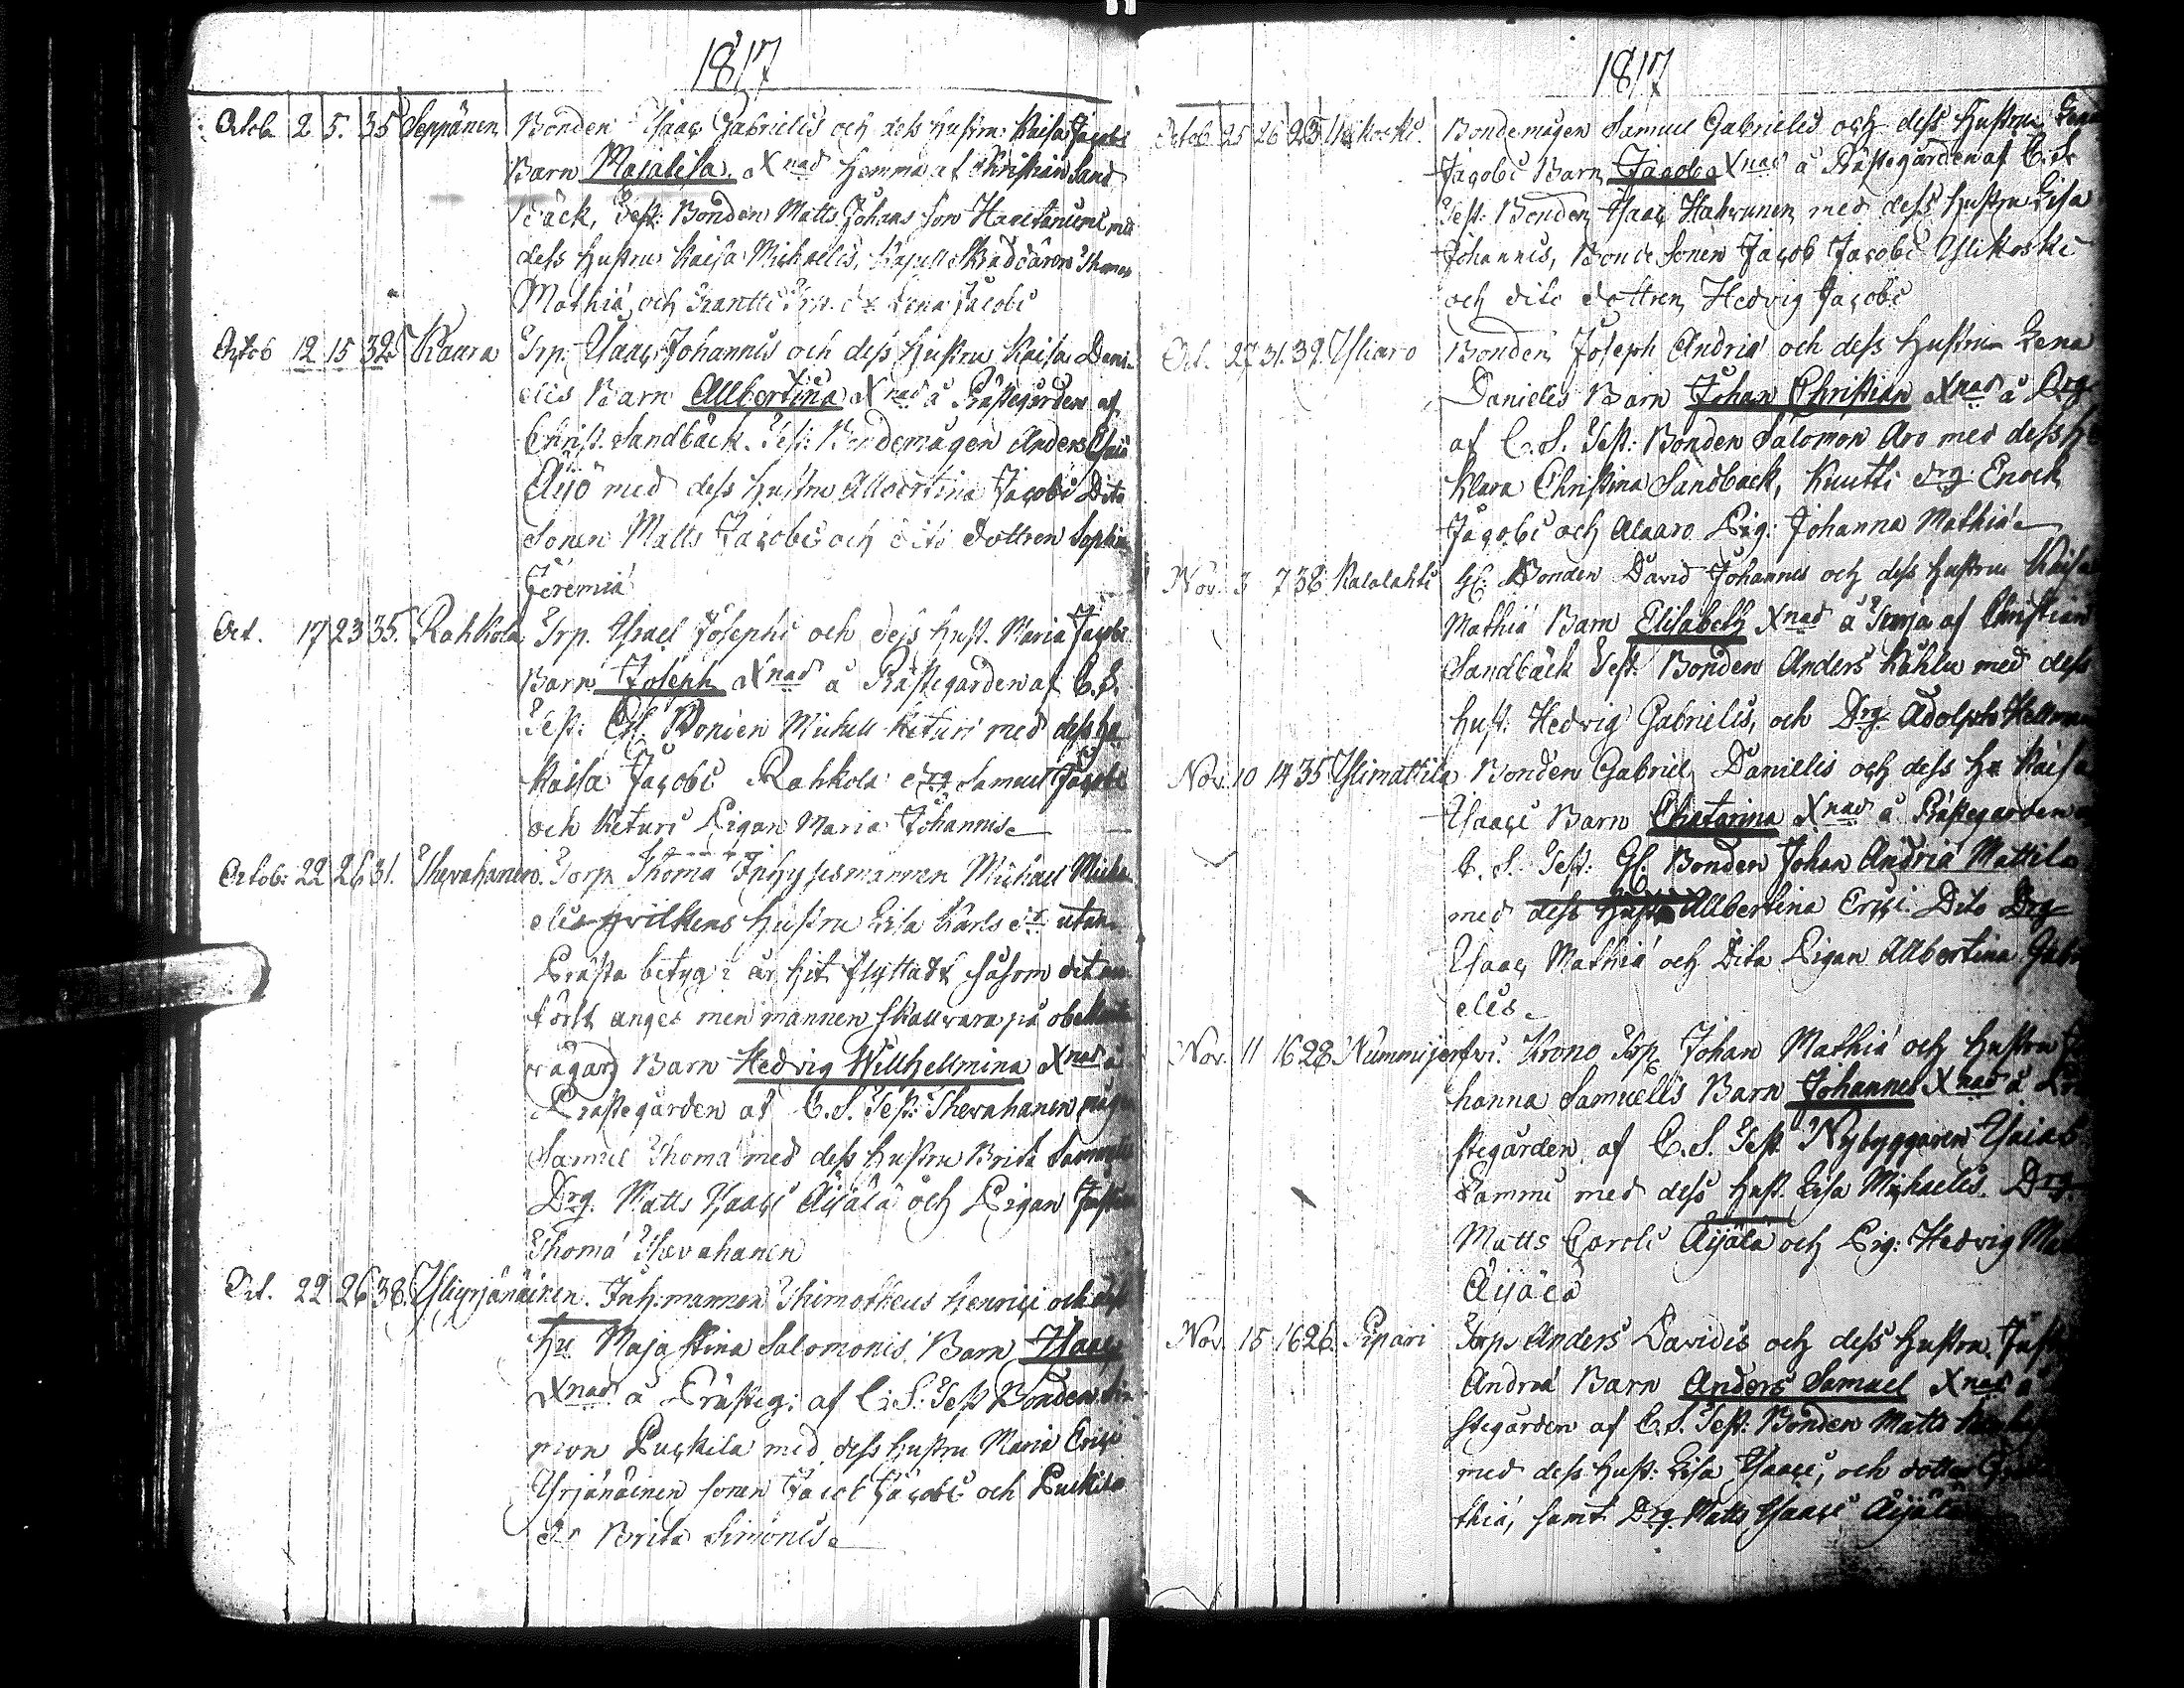 1817
Octob. 2 5. 35 Seppänen Bonden Isaac Gabrielis och dess hustru Kaisa Jacobi
Barn Majalisa Xnad hemma af Christian Sand
bäck, Test: Bonden Matts Johans son med
dess hustru Kaisa Michaelis,
Mathiä och Lena Jacobi
Octob 12 15 32 Kaura Trp. Isaac Johannis och dess hustru Kaisa Dani
elis Barn Allbertina Xnad å Prästegården af
Christ. Sandbäck. Test: Bondemågen Anders
Äijö med dess hustru Allbertina Jacobi Dito
sonen Matts Jacobi och dito dottren Sophia
Jeremiä
Oct. 17 23 35. Rahkola Trp. Israel Josephi och dess hust. Maria Jacobi
Barn Joseph Xnad å Prästegården af C. S.
Test: Bonden Michell Keturi med dess hu
Kaisa Jacobi Rahkola drg Samuel Jacobi
och Keturi Pigan Maria Johannis
Octob: 22 26 31. Thevahanen. Torp. Thomä Inhysesmannen Michael Micha
elis hvilkens hustru Lisa Karls dr utan
Prästa betyg i år hit flyttat såsom det an
först anges men mannen skall vara på obekant
vägar) Barn Hedvig Willhellmina Xnad å
Prästegården af C. S. Test: Thevahanen mågen
Samuel Thomä med dess hustru Brita Samuelis
Drg. Matts Isaaci Äijälä och Pigan
Thomä Thevahanen
Oct. 22 26 38. Yliyrjänäinen. Inh: mannen Thimotheus Henrici och dess
hu Maja Stina Salomonis Barn Isaac
Xnad å Prästeg: af C: S: Test Bonden
Puskila med dess hustru Maria Erici
Yrjänäinen sonen Jacob Jacobi och Puskila
dr Brita Simonis
1817
Octob 25 26 25 Ylikoski. Bondemågen Samuel Gabrielis och dess hustru Lena
Jacobi Barn Jacob Xnad å Prästegården af C. S.
Test: Bonden Isaac Hakrunen med dess hustru Lisa
Johannis, Bonde Sonen Jacob Jacobi Ylikoski
och dito dottren Hedvig Jacobi
Oct. 27 31. 39. Yliaro Bonden Joseph Andriä och dess hustru Lena
Danielis Barn Johan Christian Xnad å Prg
af C. S. Test: Bonden Salomon Aro med dess h
Klara Christina Sandbäck, Knutti drg Enock
Jacobi och Alaaro Pig: Johanna Mathiä
Nov. 3 7 38 Kalalahti Bonden David Johannis och dess hustru Kaisa
Mathiä Barn Elisabeth Xnad å af Christian
Sandbäck Test: Bonden Anders Kahlu med dess
hust: Hedvig Gabrielis, och Drg. Adolph Hellman
Nov. 10 14 35 Ylimattila Bonden Gabriel Danielis och dess hu Kaisa
Isaaci Barn Chatarina Xnad å Prästegården
C. S. Test: Bonden Johan Andriä Mattila
med dess hustru Allbertina Erici Dito Drg
Isaac Mathiä och Dito Pigan Allbertina Gabri
elis
Nov. 11 16 28 Nummijerfvi. Krono Trp. Johan Mathiä och hustru Jo
hanna Samuelis Barn Johannes Xnad å Prä
stegården af C. S. Test Nybyggaren Esaias
Lammi med dess hust. Lisa Michaelis. Drg.
Matts Caroli Äijälä och Pig: Hedvig
Äijälä
Nov. 15 16 26. Pipari Torp. Anders Davidis och dess hustru
Andreä Barn Anders Samuel Xnad å
stegården af C. S. Test: Bonden Matts
med dess hust: Lisa Isaaci, och dotter
thiä, samt Drg. Matts Isaaci Äijälä